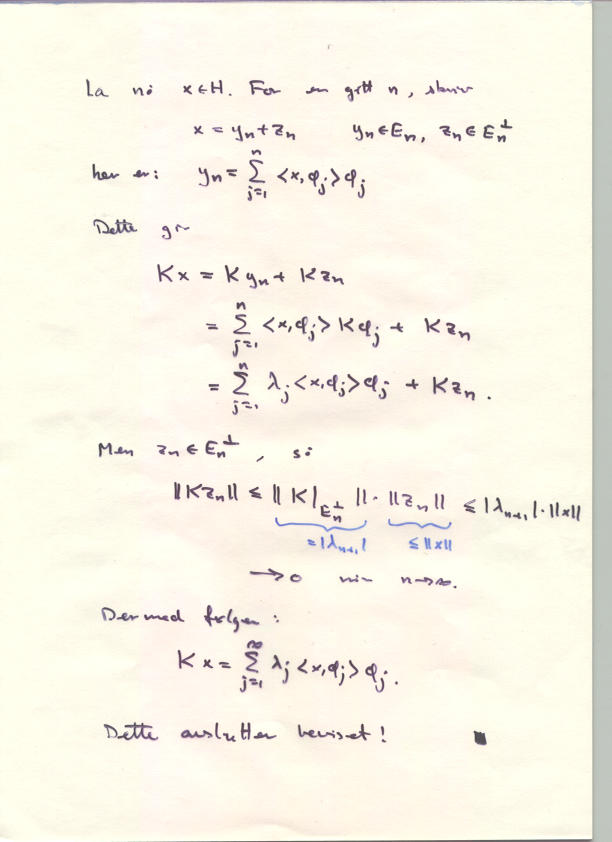 La nå x ∈ H. For en gitt n, skriv
x = yₙ + zₙ   yₙ ∈ Eₙ, zₙ ∈ Eₙ^⊥
her er: yₙ = ∑_{j=1}^{n} <x, φ_j> φ_j
Dette gir
Kx = Kyₙ + Kzₙ
= ∑_{j=1}^{n} <x, φ_j> Kφ_j + Kzₙ
= ∑_{j=1}^{n} λ_j <x, φ_j> φ_j + Kzₙ.
Men zₙ ∈ Eₙ^⊥, så
||Kzₙ|| ≤ ||K|_{Eₙ^⊥}|| · ||zₙ|| ≤ |λₙ₊₁| · ||x||
= |λₙ₊₁|   ≤ ||x||
→ 0 når n → ∞.
Dermed følger:
Kx = ∑_{j=1}^{∞} λ_j <x, φ_j> φ_j.
Dette avslutter beviset! ■